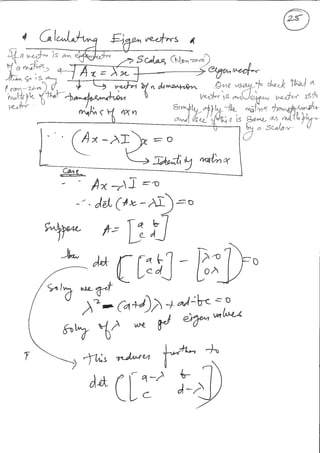 25
* Calculating Eigen vectors
If a vector is an eigenvector
of a matrix,
then so is any
(non-zero)
multiple of that
vector
Ax = λx
→ Scalar (Non-zero)
→ eigenvector
→ vector of n dimension
transformation
matrix of n x n
One way to check that a
vector is an eigen vector is to
simply apply the matrix transformation
and see if this is same as multiply-
by a scalar
∴ (Ax - λI)x = 0
→ Identity matrix
Case
∴ Ax - λI = 0
∴ det (Ax - λI) = 0
Suppose A = [a b
c d]
then
det ([a b
c d] - [λ 0
0 λ]) = 0
Solving we get
λ² - (a+d)λ + ad-bc = 0
Solving of λ we get eigen values
F
→ this reduces further to
det ([a-λ b
c d-λ])